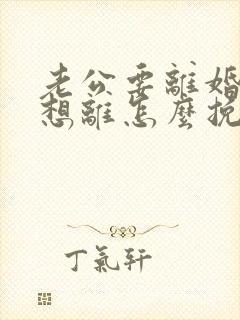 老公要離婚
想離怎麼挽
丁氣軒